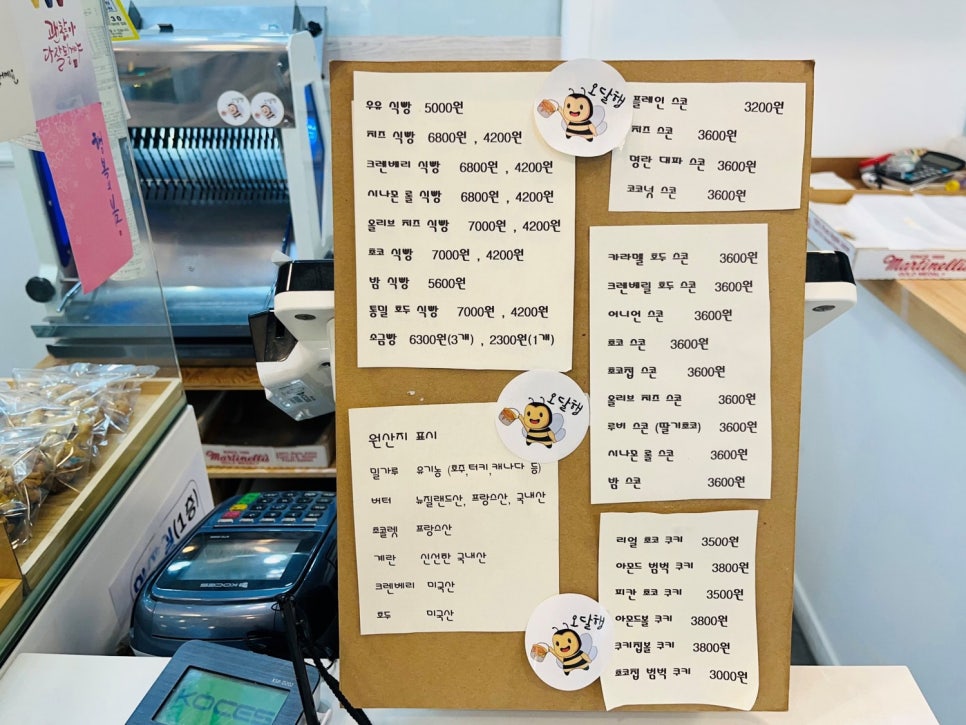 괜찮아
다 잘될거야
행복의 봄
우유 식빵 5000원
치즈 식빵 6800원 , 4200원
크렌베리 식빵 6800원 , 4200원
시나몬 롤 식빵 6800원 , 4200원
올리브 치즈 식빵 7000원 , 4200원
초코 식빵 7000원 , 4200원
밤 식빵 5600원
통밀 호두 식빵 7000원 , 4200원
소금빵 6300원(3개) , 2300원(1개)
원산지 표시
밀가루 유기농 (호주,터키,캐나다 등)
버터 뉴질랜드산, 프랑스산, 국내산
초콜렛 프랑스산
계란 신선한 국내산
크렌베리 미국산
호두 미국산
오달챕
플레인 스콘 3200원
치즈 스콘 3600원
명란 대파 스콘 3600원
코코넛 스콘 3600원
카라멜 호두 스콘 3600원
크렌베릴 호두 스콘 3600원
어니언 스콘 3600원
초코 스콘 3600원
초코칩 스콘 3600원
올리브 치즈 스콘 3600원
루비 스콘 (딸기초코) 3600원
시나몬 롤 스콘 3600원
밤 스콘 3600원
오달챕
리얼 초코 쿠키 3500원
아몬드 범벅 쿠키 3800원
피칸 초코 쿠키 3500원
아몬드볼 쿠키 3800원
쿠키칩볼 쿠키 3800원
초코칩 범벅 쿠키 3000원
오달챕
Martinelli's
GOLD MEDAL
Martinelli's
KOCES
KOCES